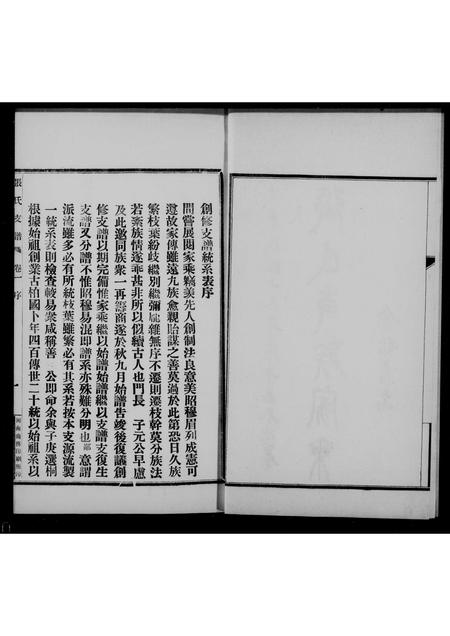 創修支譜統系表序
間嘗展閱家乘竊羨先人創制法良意美昭穆眉列成憲可
遵故家傳雖遠九族愈親貽謀之善莫過於此第恐日久族
繁枝葉紛歧繼別繼禰龐雜無序不遷則遷枝幹莫分族法
若紊族情遂乖甚非所以似續古人也門長 子元公早慮
及此邀同族衆一再籌商遂於秋九月始譜告竣後復議創
修支譜以期完備惟家乘繼以始譜始譜繼以支譜支復生
支譜又分譜不惟昭穆易混即譜系亦殊難分明也鄙意謂
派流雖多必有所統枝葉雖繁必有其系若按本支源流製
一統系表則檢查較易衆咸稱善 公即命余與子庚選桐
根據始祖創業古柏國卜年四百傳世二十統以始祖系以
張氏支譜 卷一 序 一